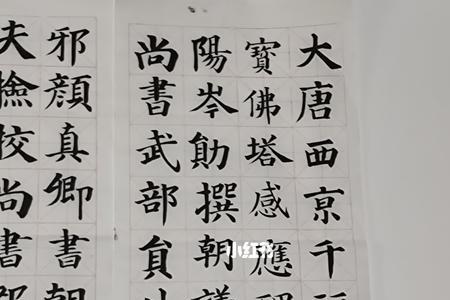 大唐西亰千
寶佛塔感應
陽岑勛撰朝
尚書武部員
邪顏真卿書朝
夫撿挍尚書
小红书